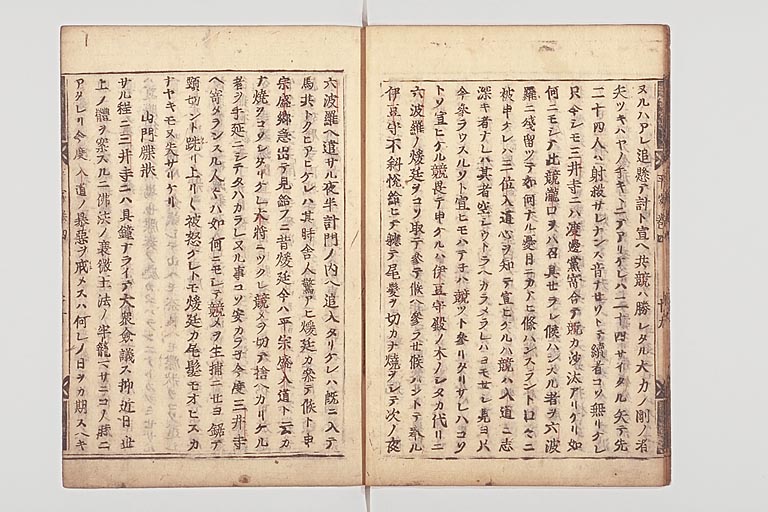 平家巻四 廿九
ヌルハアレ追懸テ討ト宣ヘ共競ハ勝レタル大カノ剛ノ者
矢ツキハヤノ手キヽニテアリケレハ二十四サイタル矢テ先
二十四人ハ射殺サレナンス音ナせソトテ續者コソ無リケレ
只今シモ三井寺ニハ渡邊黨寄合テ競カ沙汰アリケリ如
何ニモシテ此競瀧口ヲハ召具せラレ候ハンスル者ヲ六波
羅ニ残留ツテ如何ナル憂目ニカアヒ候ハンスラント口々ニ
被申ケレハ三位入道心ヲ知テ宣ヒケルハ競ハ入道ニ志
深キ者ナレハ其者空シウトラヘカラメラレハヨモせシ見ヨ只
今参ラウスルソト宣ヒモハテ子ハ競ツト参リタリサレハコソ
トソ宣ヒケル競畏テ申ケルハ伊豆守殿ノ木ノシタカ代リニ
六波羅ノ煖廷ヲコソ取テ参テ候ヘ参ラせ候ハントテ奉ル
伊豆守不斜悦給ヒテ軈テ尾髪ヲ切カナ焼ヲシテ次ノ夜
六波羅ヘ遣サル夜半計門ノ内ヘ追入タリケレハ厩ニ入テ
馬共トクヒアヒケレハ其時舎人驚アヒ煖廷カ参テ候ト申
宗盛卿急出テ見給フニ昔煖廷今ハ平宗盛入道ト云カ
ナ焼ヲコソシタリケレ大将ニツクレ競メヲ切テ捨ヘカリケル
者ヲ手延ニシテタハカラレヌル事コソ安カラ子今度三井寺
ヘ寄タランスル人々ハ如何ニモシテ競メヲ生捕ニせヨ鋸テ
頸切ント躍リ上リ〱被怒ケレトモ煖廷カ尾髪モオヒスカ
ナヤキモ又失サリケリ
山門牒状
サル程ニ三井寺ニハ貝鐘ナライテ大衆僉議ス抑近日世
上ノ體ヲ案スルニ佛法ノ衰微王法ノ牢籠マサニコノ時ニ
アタレリ今度入道ノ暴惡ヲ戒メスハ何レノ日ヲカ期スヘキ